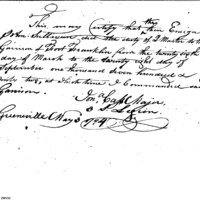 This may Certify that the Ensign
John Sullivan did the duty of Q Master to the
Garrison of Fort Franklin from the twenty eight
day of March to the twenty eight day of
September one thousand seven hundred &
ninty two, at which time I Commanded said
Garrison.
Jona Major
Greeneville May 3 1794